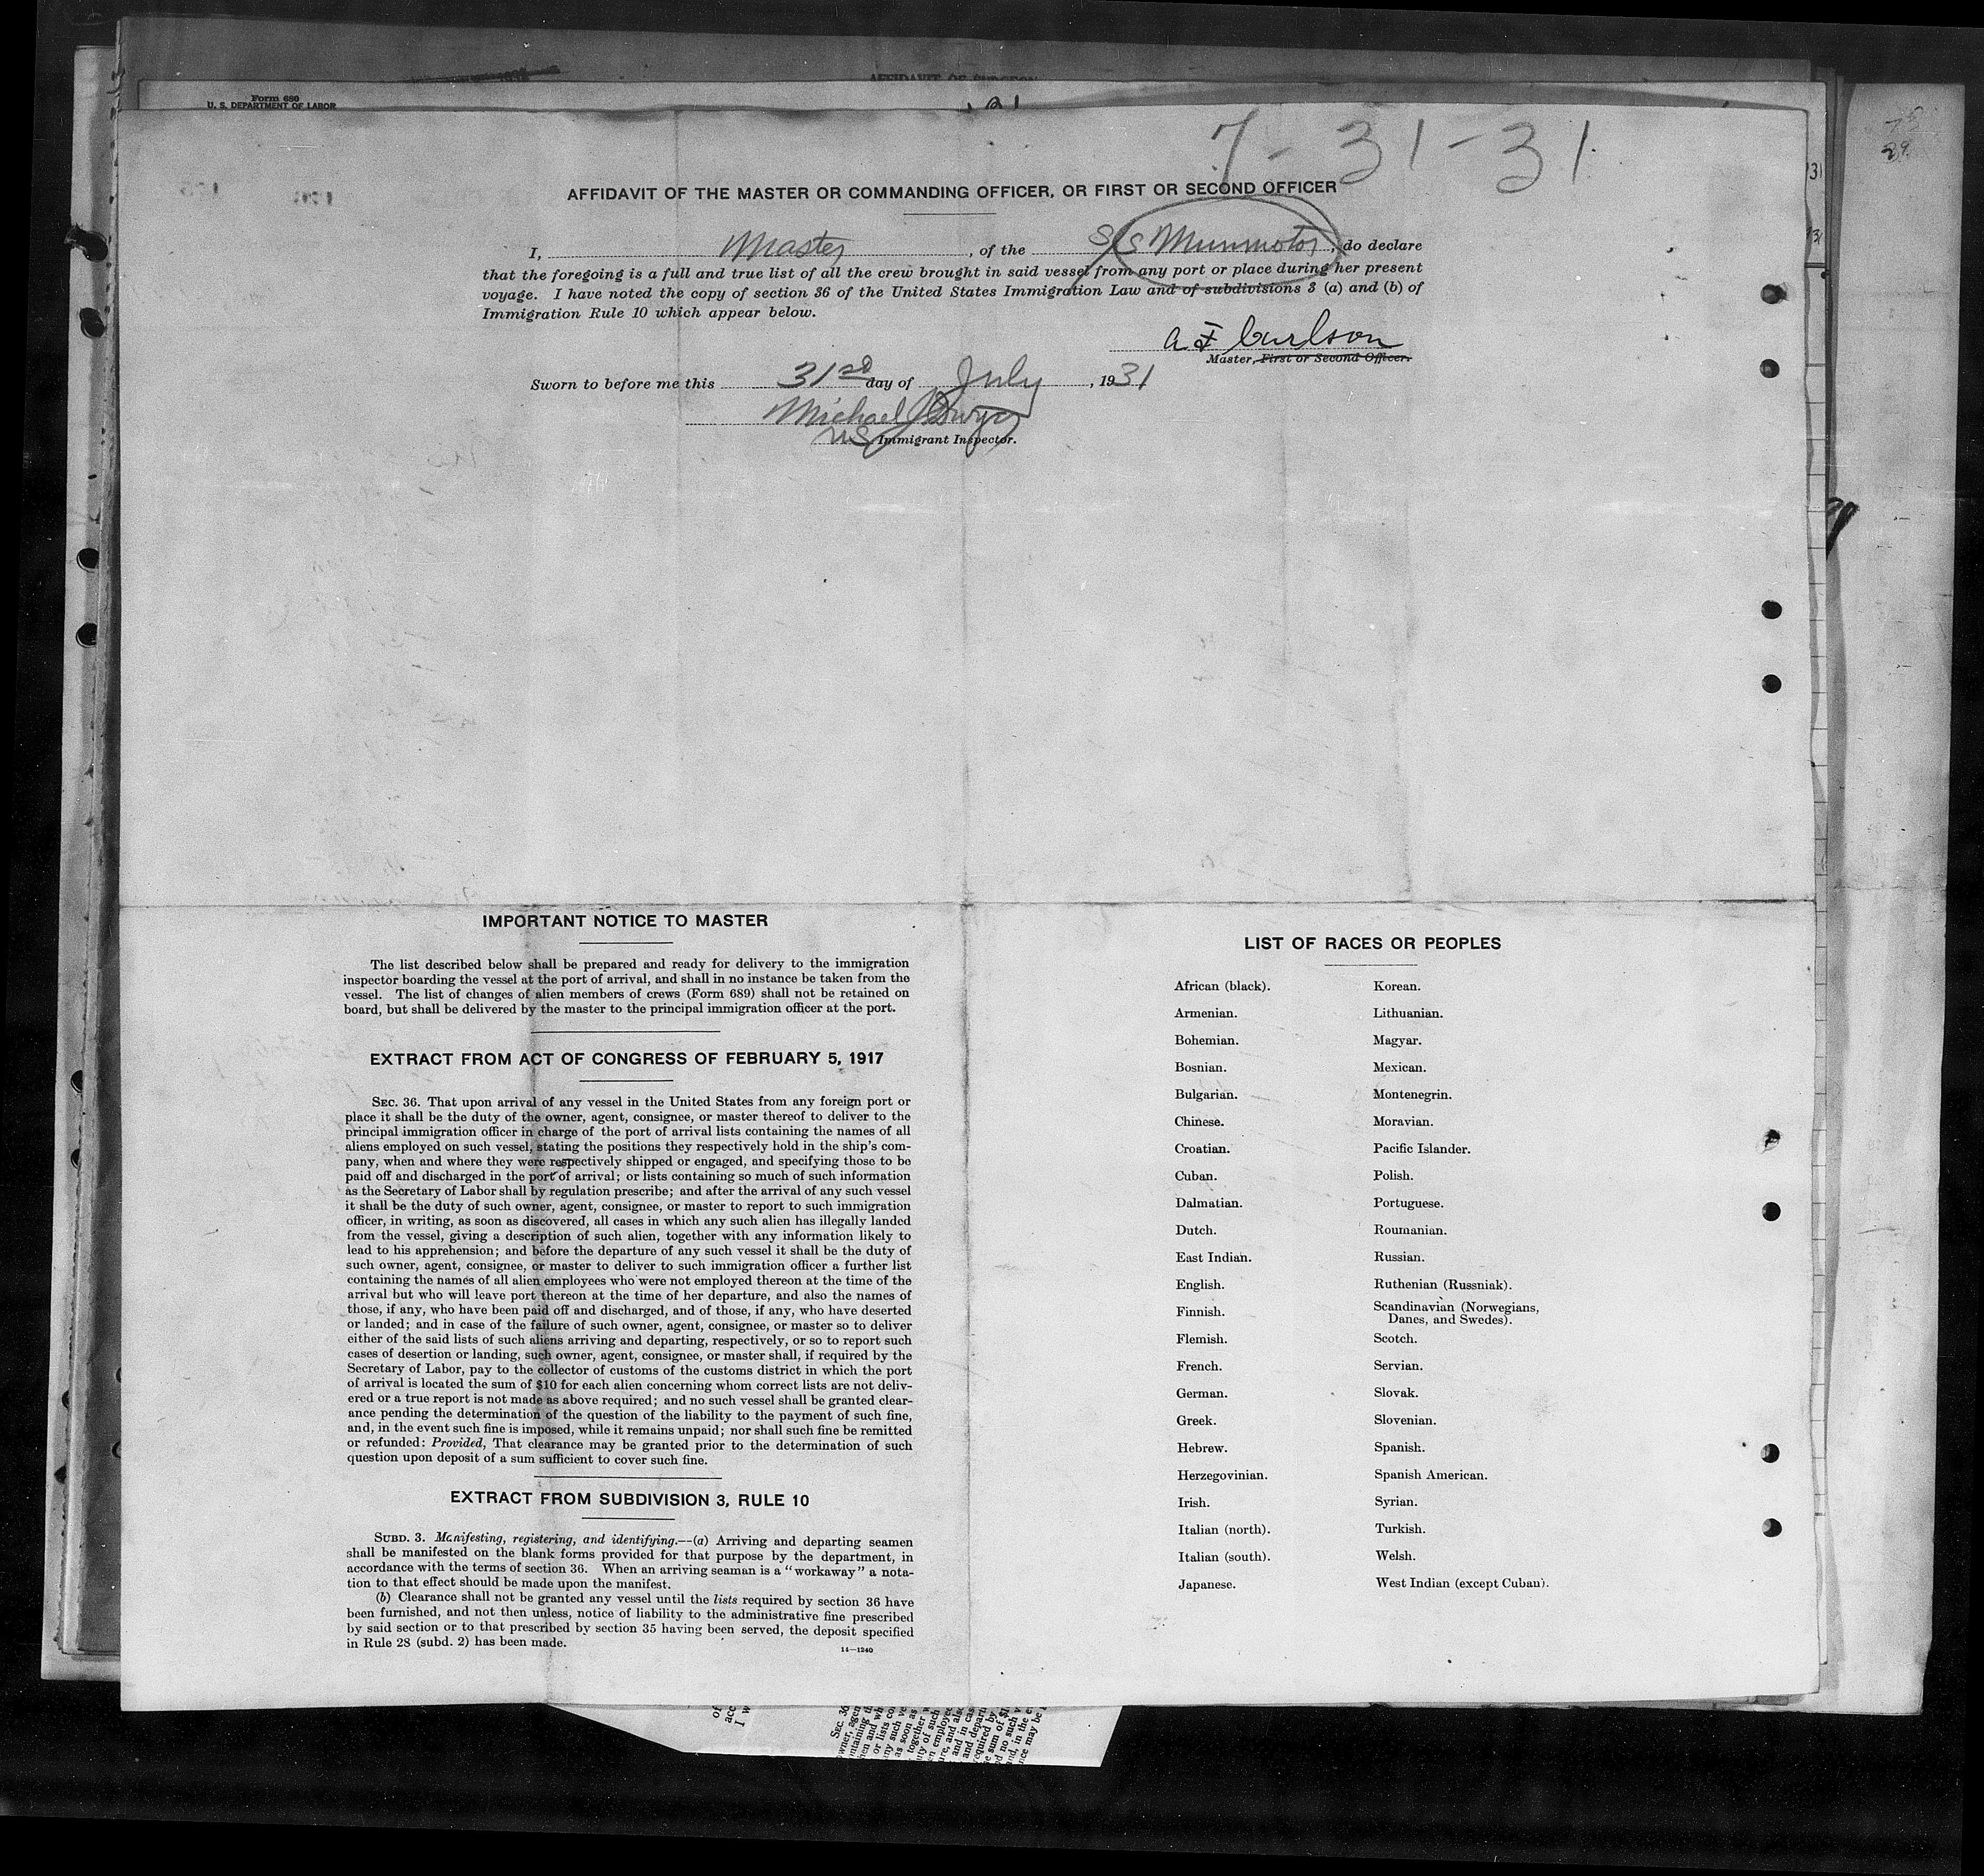 Form 680
U. S. DEPARTMENT OF LABOR
AFFIDAVIT OF SURGEON
7-31-31
AFFIDAVIT OF THE MASTER OR COMMANDING OFFICER, OR FIRST OR SECOND OFFICER
I, Master, of the S/S Munmotor, do declare
that the foregoing is a full and true list of all the crew brought in said vessel from any port or place during her present
voyage. I have noted the copy of section 36 of the United States Immigration Law and of subdivisions 3 (a) and (b) of
Immigration Rule 10 which appear below.
A F Carlson
Master, First or Second Officer.
Sworn to before me this 31st day of July, 1931
Michael J Dwyer
US Immigrant Inspector.
IMPORTANT NOTICE TO MASTER
The list described below shall be prepared and ready for delivery to the immigration
inspector boarding the vessel at the port of arrival, and shall in no instance be taken from the
vessel. The list of changes of alien members of crews (Form 689) shall not be retained on
board, but shall be delivered by the master to the principal immigration officer at the port.
EXTRACT FROM ACT OF CONGRESS OF FEBRUARY 5, 1917
SEC. 36. That upon arrival of any vessel in the United States from any foreign port or
place it shall be the duty of the owner, agent, consignee, or master thereof to deliver to the
principal immigration officer in charge of the port of arrival lists containing the names of all
aliens employed on such vessel, stating the positions they respectively hold in the ship's com-
pany, when and where they were respectively shipped or engaged, and specifying those to be
paid off and discharged in the port of arrival; or lists containing so much of such information
as the Secretary of Labor shall by regulation prescribe; and after the arrival of any such vessel
it shall be the duty of such owner, agent, consignee, or master to report to such immigration
officer, in writing, as soon as discovered, all cases in which any such alien has illegally landed
from the vessel, giving a description of such alien, together with any information likely to
lead to his apprehension; and before the departure of any such vessel it shall be the duty of
such owner, agent, consignee, or master to deliver to such immigration officer a further list
containing the names of all alien employees who were not employed thereon at the time of the
arrival but who will leave port thereon at the time of her departure, and also the names of
those, if any, who have been paid off and discharged, and of those, if any, who have deserted
or landed; and in case of the failure of such owner, agent, consignee, or master so to deliver
either of the said lists of such aliens arriving and departing, respectively, or so to report such
cases of desertion or landing, such owner, agent, consignee, or master shall, if required by the
Secretary of Labor, pay to the collector of customs of the customs district in which the port
of arrival is located the sum of $10 for each alien concerning whom correct lists are not deliv-
ered or a true report is not made as above required; and no such vessel shall be granted clear-
ance pending the determination of the question of the liability to the payment of such fine,
and, in the event such fine is imposed, while it remains unpaid; nor shall such fine be remitted
or refunded: Provided, That clearance may be granted prior to the determination of such
question upon deposit of a sum sufficient to cover such fine.
EXTRACT FROM SUBDIVISION 3, RULE 10
SUBD. 3. Manifesting, registering, and identifying.—(a) Arriving and departing seamen
shall be manifested on the blank forms provided for that purpose by the department, in
accordance with the terms of section 36. When an arriving seaman is a "workaway" a nota-
tion to that effect should be made upon the manifest.
(b) Clearance shall not be granted any vessel until the lists required by section 36 have
been furnished, and not then unless, notice of liability to the administrative fine prescribed
by said section or to that prescribed by section 35 having been served, the deposit specified
in Rule 28 (subd. 2) has been made.
14—1240
LIST OF RACES OR PEOPLES
African (black).
Armenian.
Bohemian.
Bosnian.
Bulgarian.
Chinese.
Croatian.
Cuban.
Dalmatian.
Dutch.
East Indian.
English.
Finnish.
Flemish.
French.
German.
Greek.
Hebrew.
Herzegovinian.
Irish.
Italian (north).
Italian (south).
Japanese.
Korean.
Lithuanian.
Magyar.
Mexican.
Montenegrin.
Moravian.
Pacific Islander.
Polish.
Portuguese.
Roumanian.
Russian.
Ruthenian (Russniak).
Scandinavian (Norwegians,
Danes, and Swedes).
Scotch.
Servian.
Slovak.
Slovenian.
Spanish.
Spanish American.
Syrian.
Turkish.
Welsh.
West Indian (except Cuban).